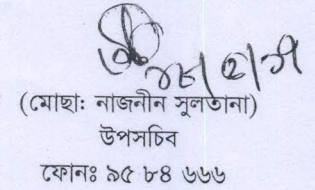 (মোছা: নাজনীন সুলতানা)
উপসচিব
ফোনঃ ৯৫ ৮৪ ৬৬৬